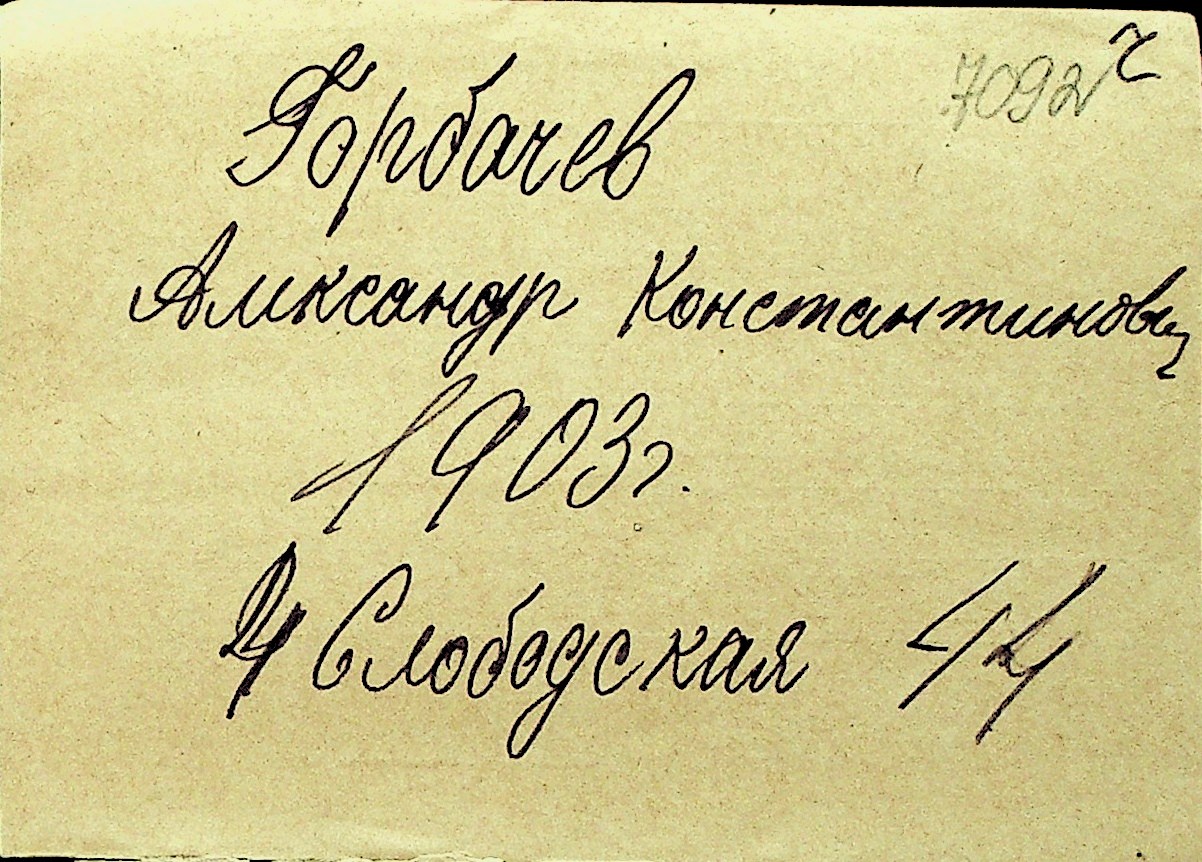 7092 ч
Горбачев
Александр Константинович
1903г.
4 Слободская 44